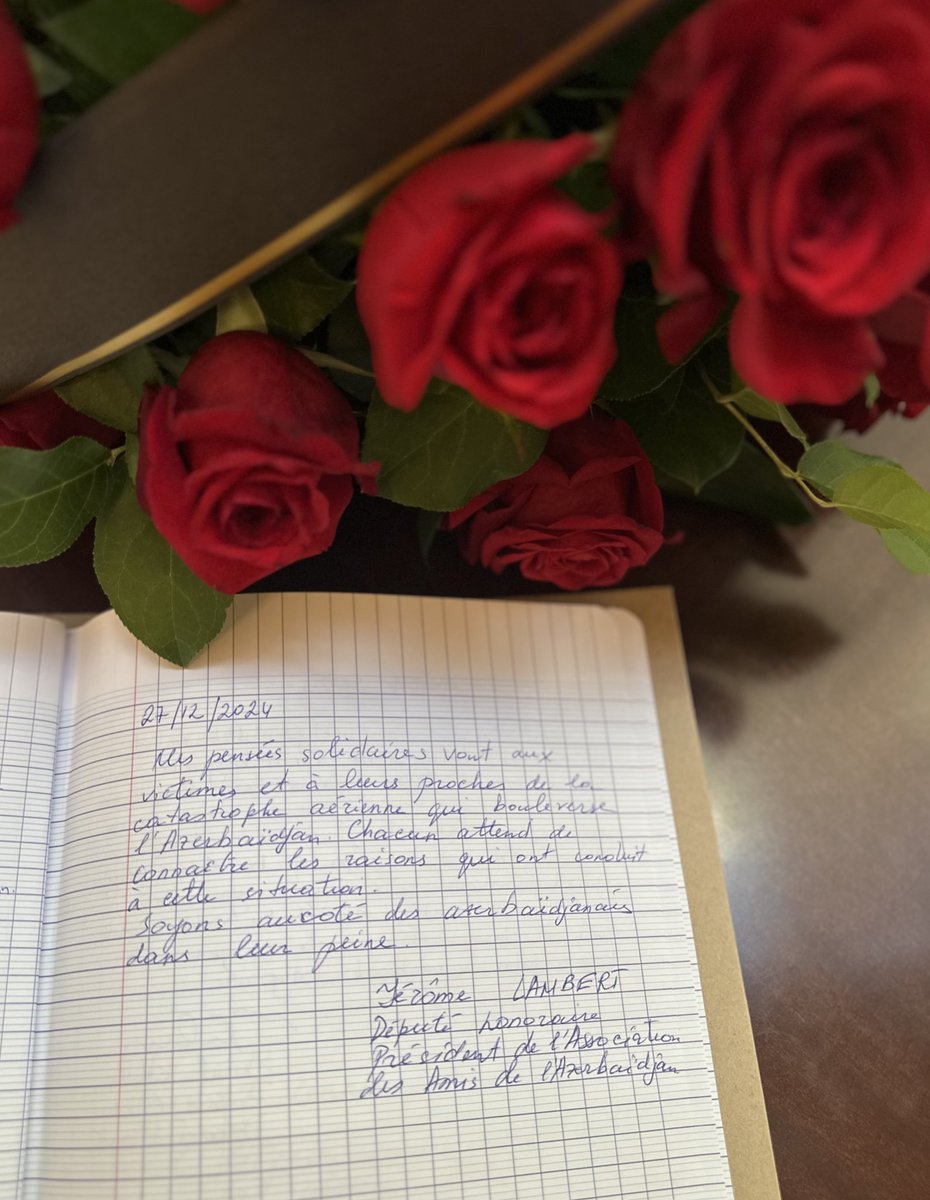 27/12/2024
Mes pensées solidaires vont aux
victimes et à leurs proches de la
catastrophe aérienne qui bouleverse
l'Azerbaïdjan. Chacun attend de
connaître les raisons qui ont conduit
à cette situation.
Soyons aucoté des azerbaïdjanais
dans leur peine.
Jérôme LAMBERT
Député honoraire
Président de l'Association
des Amis de l'Azerbaïdjan
n.